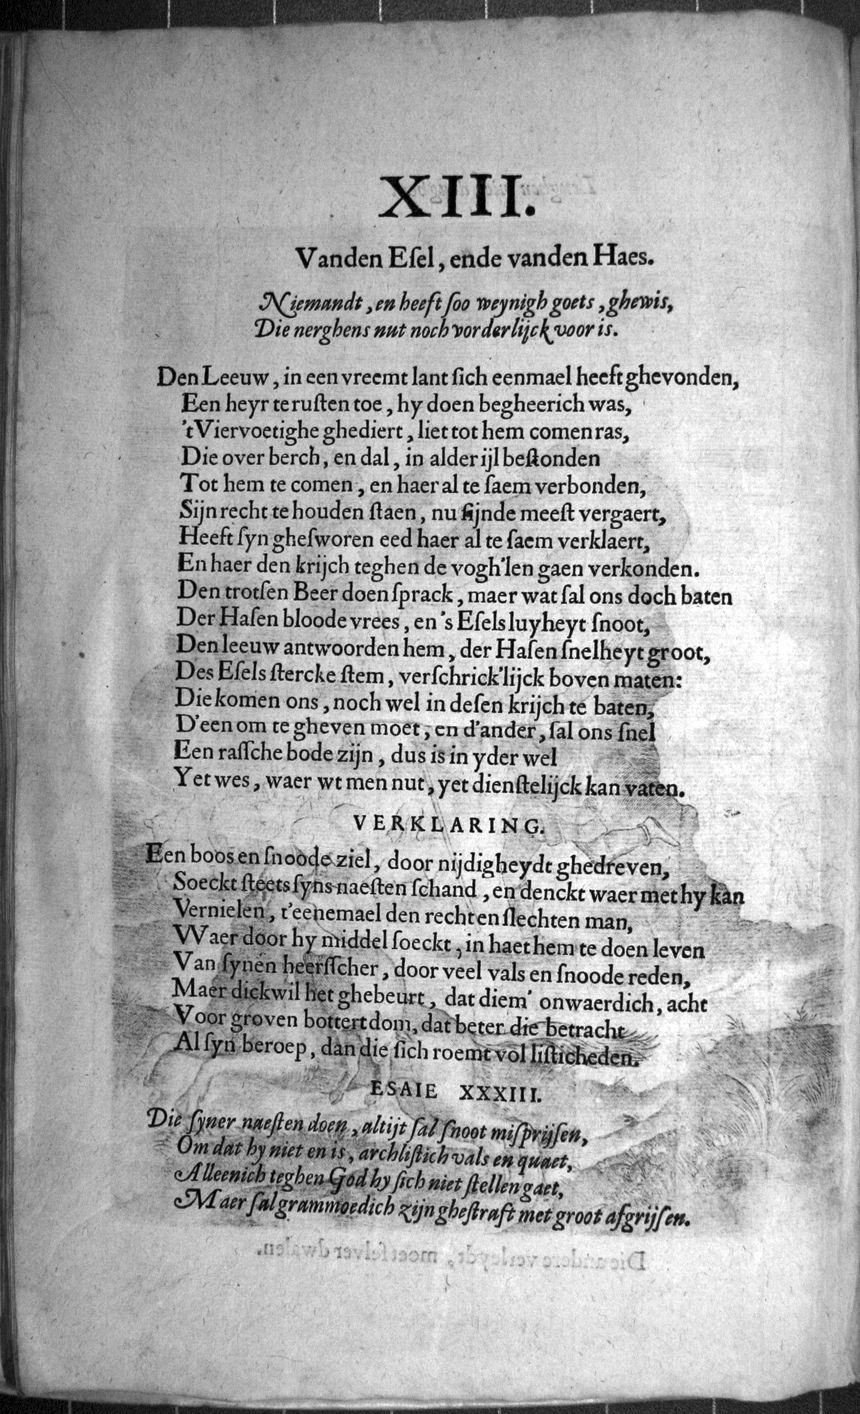 XIII.
Vanden Eſel, ende vanden Haes.
Niemandt, en heeft ſoo weynigh goets, ghewis,
Die nerghens nut noch vorderlijck voor is.
Den Leeuw, in een vreemt lant ſich eenmael heeft ghevonden,
Een heyr te ruſten toe, hy doen begheerich was,
't Viervoetighe ghediert, liet tot hem comen ras,
Die over berch, en dal, in alder ijl beſtonden
Tot hem te comen, en haer al te ſaem verbonden,
Sijn recht te houden ſtaen, nu ſijnde meeſt vergaert,
Heeft ſyn gheſworen eed haer al te ſaem verklaert,
En haer den krijch teghen de vogh'len gaen verkonden.
Den trotſen Beer doen ſprack, maer wat ſal ons doch baten
Der Haſen bloode vrees, en 's Eſels luyheyt ſnoot,
Den leeuw antwoorden hem, der Haſen ſnelheyt groot,
Des Eſels ſtercke ſtem, verſchrick'lijck boven maten:
Die komen ons, noch wel in deſen krijch te baten,
D'een om te gheven moet, en d'ander, ſal ons ſnel
Een raſſche bode zijn, dus is in yder wel
Yet wes, waer wt men nut, yet dienſtelijck kan vaten.
VERKLARING.
Een boos en ſnoode ziel, door nijdigheydt ghedreven,
Soeckt ſteets ſyns naeſten ſchand, en denckt waer met hy kan
Vernielen, t'eenemael den rechten ſlechten man,
Waer door hy middel ſoeckt, in haet hem te doen leven
Van ſynen heerſſcher, door veel vals en ſnoode reden,
Maer dickwil het ghebeurt, dat diem' onwaerdich, acht
Voor groven bottertdom, dat beter die betracht
Al ſyn beroep, dan die ſich roemt vol liſticheden.
ESAIE XXXIII.
Die ſyner naeſten doen, altijt ſal ſnoot miſprijſen,
Om dat hy niet en is, archliſtich vals en quaet,
Alleenich teghen God hy ſich niet ſtellen gaet,
Maer ſal grammoedich zijn gheſtraft met groot afgrijſen.
Die andere verleydt, moet ſelver dwalen.